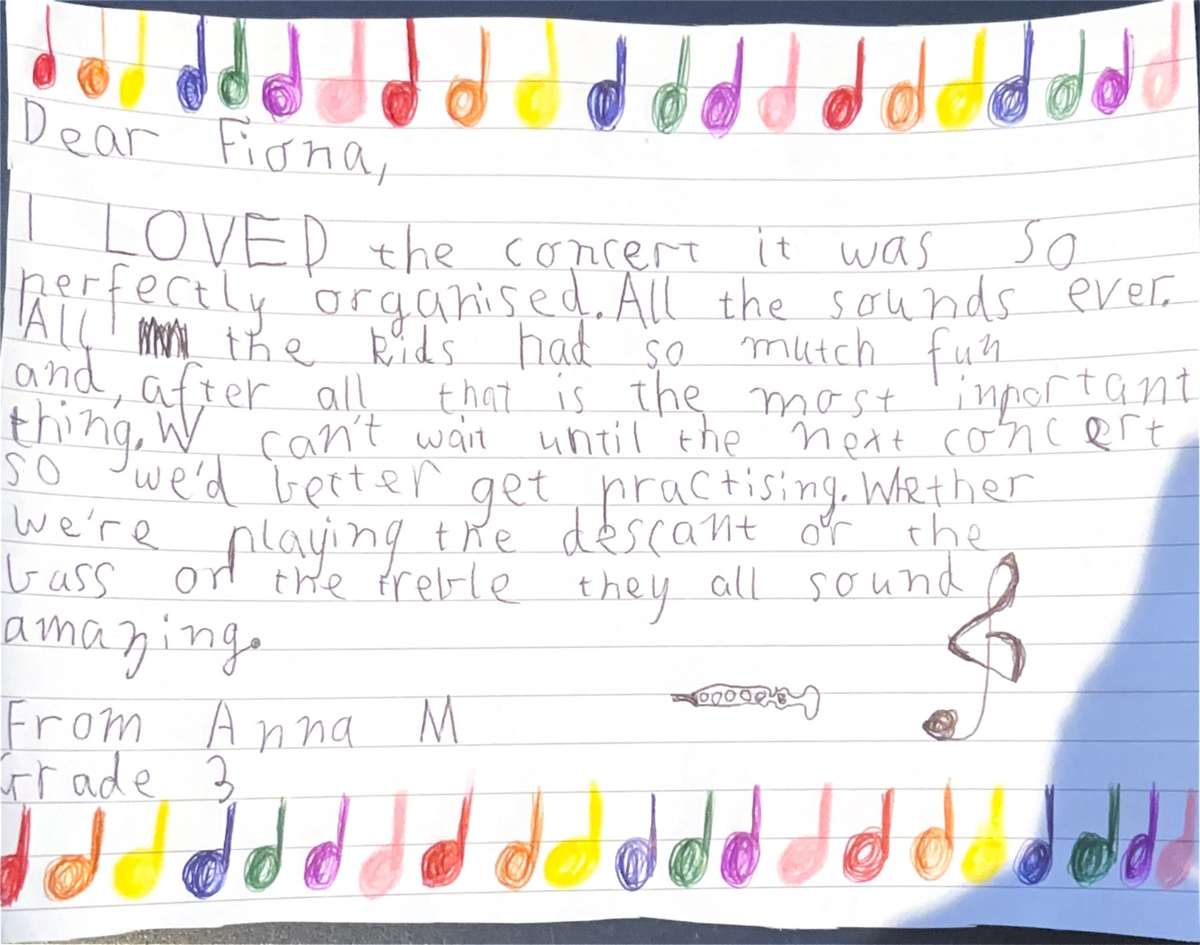 Dear Fiona,
I LOVED the concert it was SO
perfectly organised. All the sounds ever.
All the kids had so mutch fun
and, after all that is the most inportant
thing. W can't wait until the next concert
so we'd better get practising. Whether
we're playing the descant or the
bass or the treble they all sound
amazing.
From Anna M
Grade 3